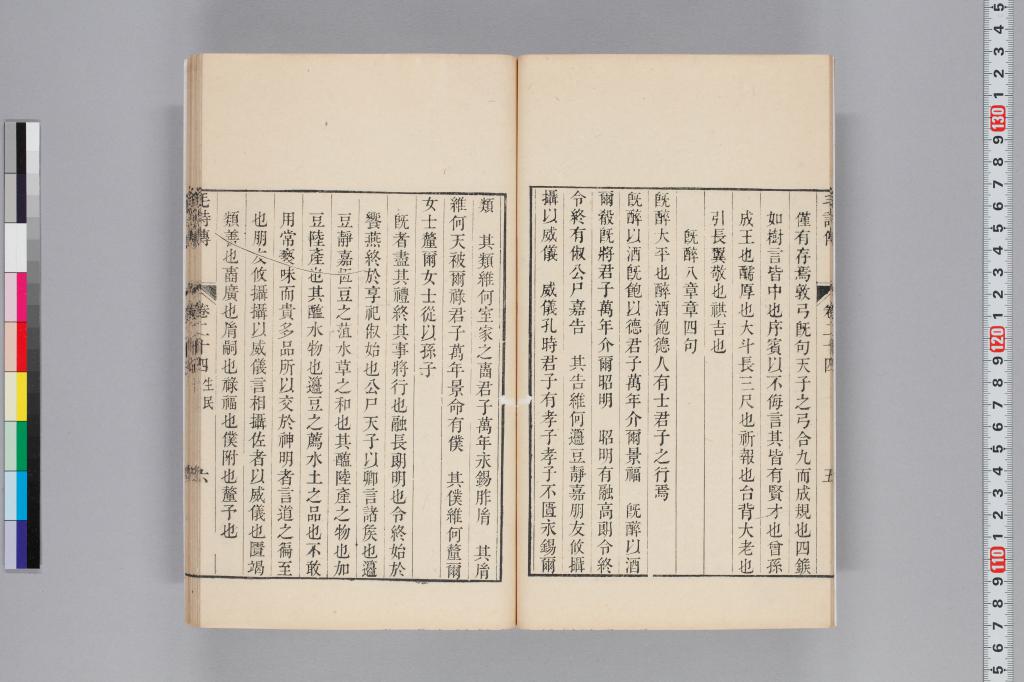 僅有存焉敦弓旣句天子之弓合九而成規也四鍭
如樹言皆中也序賓以不侮言其皆有賢才也曾孫
成王也醹厚也大斗長三尺也祈報也台背大老也
引長翼敬也祺吉也
旣醉八章章四句
旣醉大平也醉酒飽德人有士君子之行焉
旣醉以酒旣飽以德君子萬年介爾景福 旣醉以酒
爾殽旣將君子萬年介爾昭明 昭明有融高朗令終
令終有俶公尸嘉告 其告維何籩豆靜嘉朋友攸攝
攝以威儀 威儀孔時君子有孝子孝子不匱永錫爾
類 其類維何室家之壼君子萬年永錫胙胤 其胤
維何天被爾祿君子萬年景命有僕 其僕維何釐爾
女士釐爾女士從以孫子
旣者盡其禮終其事將行也融長朗明也令終始於
饗燕終於享祀俶始也公尸天子以卿言諸矦也籩
豆靜嘉恆豆之菹水草之和也其醢陸產之物也加
豆陸產也其醢水物也籩豆之薦水土之品也不敢
用常褻味而貴多品所以交於神明者言道之徧至
也朋友攸攝攝以威儀言相攝佐者以威儀也匱竭
類善也壼廣也胤嗣也祿福也僕附也釐予也
毛詩傳 卷二十四 生民 六